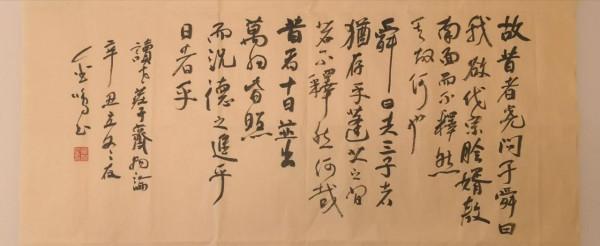 故昔者堯問于舜曰
我欲伐宗膾婿敖
南面而不釋然
其故何也
舜曰夫三子者
猶存乎蓬艾之間
若不釋然何哉
昔者十日並出
萬物皆照
而況德之進乎
日者乎
讀莊子齊物論
辛丑立冬之夜
金鳴书